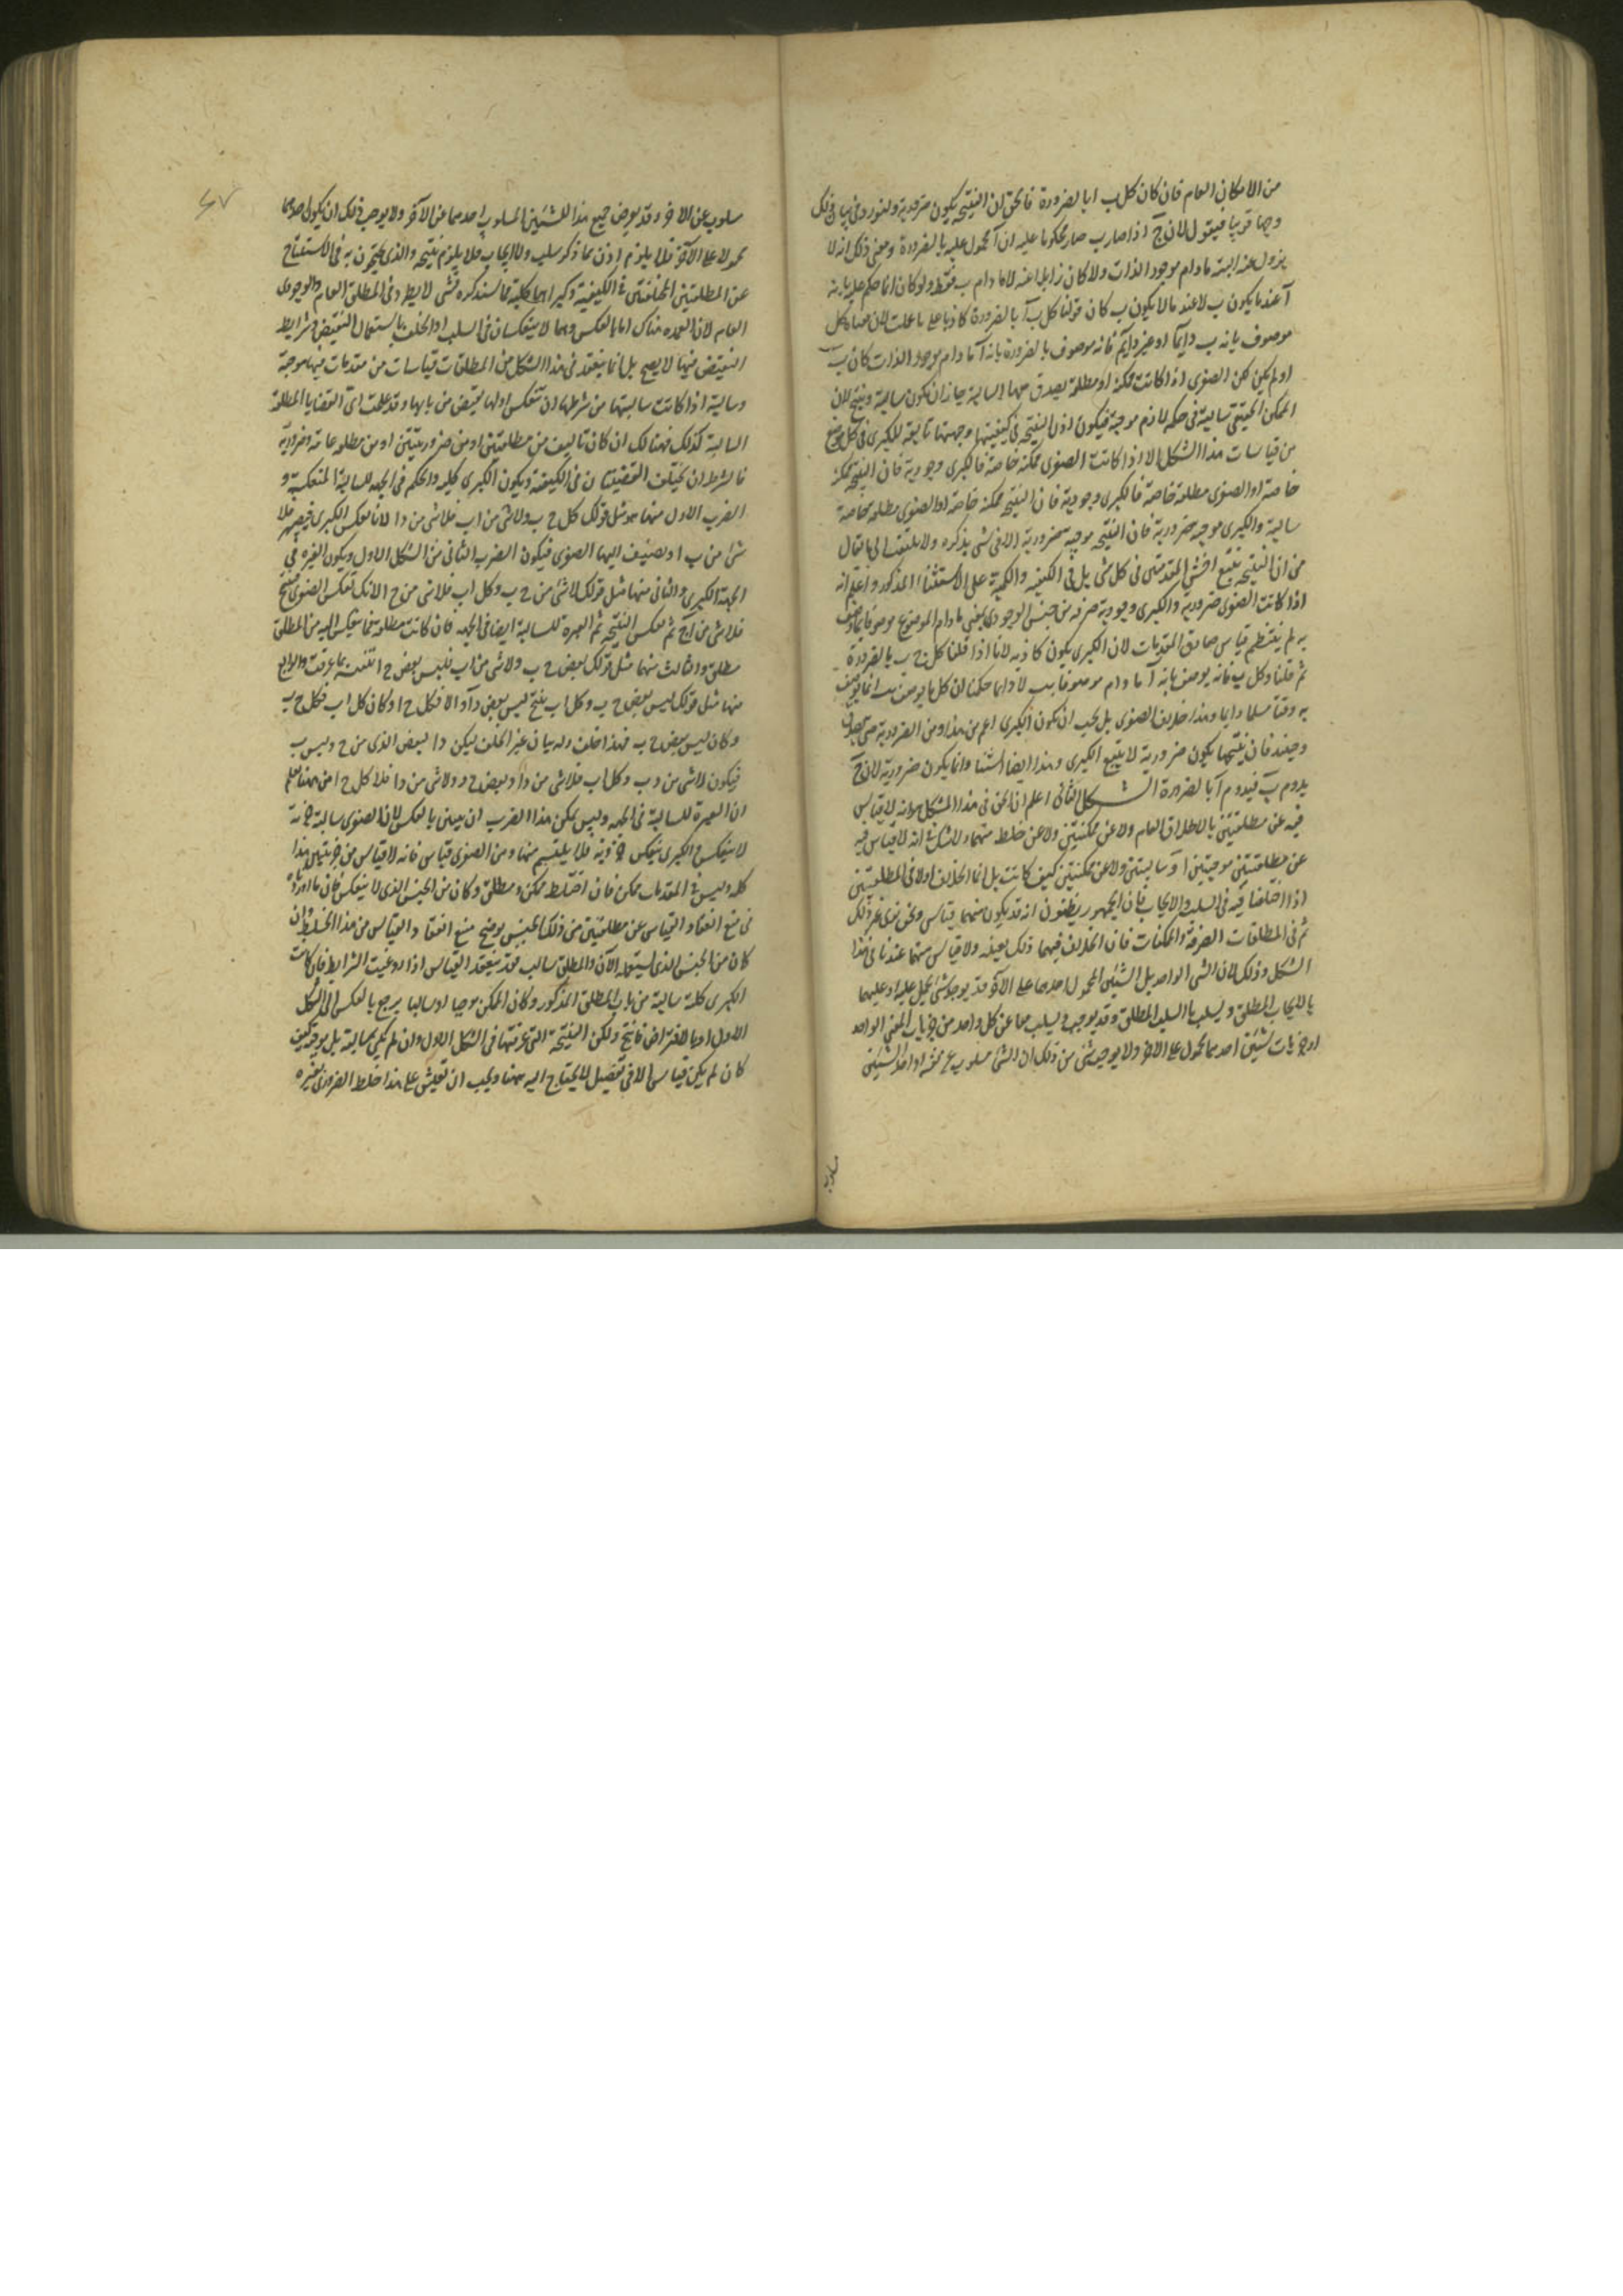 من الامكان العام فان كان كل ب ا بالضرورة فالحق ان النتيجة يكون ضرورية ولنورد فى بيان ذلك
وجها قريبا فيقول لان ج اذا صار ب صار محكوما عليه ان آ محمول عليه بالضرورة ومعنى ذلك انه لا
يزول عنه البتة مادام موجود الذات ولا كان زايلا عنه لا مادام ب فقط ولو كان انما حكم عليه بانه
آ عند ما يكون ب لا عند ما لا يكون ب كان قولنا كل ب آ بالضرورة كاذبا على ما علمت لان معناه كل
موصوف بانه ب دايما او غير دايم فانه موصوف بالضرورة بانه آ مادام موجود الذات كان ب
او لم يكن لكن الصغرى اذا كانت ممكنة او مطلقة يصدق معها السالبة جاز ان تكون سالبة وينتج لان
الممكن الحقيقى سالبه فى حكم لازم موجبه فيكون اذن النتيجة فى كيفيتها وجهتها تابعة للكبرى فى كل موضع
من قياسات هذا الشكل الا اذا كانت الصغرى ممكنة خاصة فالكبرى وجودية فان النتيجة ممكنة
خاصة او الصغرى مطلقة خاصة فالكبرى وجودية فان النتيجة ممكنة خاصة او الصغرى مطلقة خاصة
سالبة والكبرى موجبة ضرورية فان النتيجة موجبة ضرورية الا فى شى نذكره ولا يلتفت الى ما يقال
من ان النتيجة تتبع اخس المقدمتين فى كل شى بل فى الكيفية والكمية على الاستثناء المذكور واعلم انه
اذا كانت الصغرى ضرورية والكبرى وجودية صرفه من جنس الوجودى بمعنى مادام الموضوع موصوفا بما وصف
به لم ينتظم قياس صادق المقدمات لان الكبرى يكون كاذبه لانا اذا قلنا كل ج ب بالضرورة
ثم قلنا وكل ب فانه يوصف بانه آ مادام موصوفا ب لا دايما حكمنا ان كل ما يوصف ب انما يوصف
به وقتا ما لا دايما وهذا خلاف الصغرى بل يجب ان تكون الكبرى اعم من هذا ومن الضرورية حتى تصدق
وحينئذ فان نتيجتها يكون ضرورية لا يتبع الكبرى وهذا ايضا استثناء وانما يكون ضرورية لان ج
يدوم ب فيدوم آ بالضرورة الشكل الثانى اعلم ان الحق فى هذا الشكل هو انه لا قياس
فيه عن مطلقتين بالاطلاق العام ولا عن ممكنتين ولا عن خلط منهما ولا شك فى انه لا قياس فيه
عن مطلقتين موجبتين او سالبتين ولا عن ممكنتين كيف كانت بل انما الخلاف اولا فى المطلقتين
اذا اختلفتا فيه فى السلب والايجاب فان الجمهور يظنون انه قد يكون منهما قياس ونحن نرى غير ذلك
ثم فى المطلقات الصرفة والممكنات فان الخلاف فيهما ذلك بعينه ولا قياس منهما عندنا فى هذا
الشكل وذلك لان الشى الواحد بل الشيئين المحمول احدهما على الآخر قد يوجد شى يحمل عليه او عليهما
بالايجاب المطلق ويسلب بالسلب المطلق وقد يوجب ويسلب معا عن كل واحد من جزئيات المعنى الواحد
او جزئيات شيئين احدهما محمول على الاخر ولا يوجب شى من ذلك ان الشى مسلوب عن نفسه او احد الشيئين
مسلوب
مسلوب عن الاخر وقد يعرض جميع هذا للشيئين المسلوب احدهما عن الآخر ولا يوجب ذلك ان يكون احدهما
محمولا على الآخر فلا يلزم اذن مما ذكر سلب ولا ايجاب فلا يلزم نتيجة والذى يحتجون به فى الاستنتاج
عن المطلقتين المختلفتين فى الكيفية وكبراهما كلية مما سنذكره فشى لا يطرد فى المطلق العام والوجودى
العام لان العمدة هناك اما بالعكس وهما لا ينعكسان فى السلب او الخلف باستعمال النقيض وشرايط
النقيض فيهما لا يصح بل انما ينعقد فى هذا الشكل من المطلقات قياسات من مقدمات فيها موجبة
وسالبة اذا كانت سالبتها من شرطها ان تنعكس او لها نقيض من بابها وقد علمت اى القضايا المطلقة
السالبة كذلك فهنالك ان كان تاليف من مطلقتين او من ضروريتين او من مطلقة عامة وضرورية
فالشرط ان يختلف القضيتان فى الكيفية ويكون الكبرى كلية والحكم فى الجهة للسالبة المنعكسة و
الضرب الاول منها هو مثل قولك كل ج ب ولا شى من ا ب فلا شى من ج ا لانا نعكس الكبرى فيصير لا
شى من ب ا ونضيف اليها الصغرى فيكون الضرب الثانى من الشكل الاول ويكون العبرة فى
الجهة للكبرى والثانى منها مثل قولك لا شى من ج ب وكل ا ب فلا شى من ج ا لانك تعكس الصغرى فينتج
فلا شى من ا ج ثم تعكس النتيجة ثم العبرة للسالبة ايضا فى الجهة فان كانت مطلقة فما ينعكس اليه من المطلق
مطلق والثالث منها مثل قولك بعض ج ب ولا شى من ا ب فليس بعض ج ا تثبته بما عرفت والرابع
منها مثل قولك ليس بعض ج ب وكل ا ب ينتج ليس بعض ج ا والا فكل ج ا وكان كل ا ب فكل ج ب
وكان ليس بعض ج ب فهذا خلف وله بيان غير الخلف ليكن د البعض الذى من ج وليس ب
فيكون لا شى من د ب وكل ا ب فلا شى من د ا وبعض ج د ولا شى من د ا فلا كل ج ا من ههنا تعلم
ان العبرة للسالبة فى الجهة وليس يمكن هذا الضرب ان يبين بالعكس لان الصغرى سالبة جزئية
لا ينعكس والكبرى ينعكس جزئية فلا يلتئم منها ومن الصغرى قياس فانه لا قياس من جزئيتين هذا
كله وليس فى المقدمات ممكن فان اختلط ممكن ومطلق وكان من الجنس الذى لا ينعكس فان ما اوردناه
فى منع انعقاد القياس عن مطلقتين من ذلك الجنس يوضح منع انعقاد القياس من هذا الخلط وان
كان من الجنس الذى نستعمله الآن والمطلق سالب فقد ينعقد القياس اذا روعيت الشرايط فان كانت
الكبرى كلية سالبة من باب المطلق المذكور وكان الممكن موجبا او سالبا يرجع بالعكس الى الشكل
الاول او بالافتراض فانتج ولكن النتيجة التى عرفتها فى الشكل الاول وان لم تكن سالبة بل موجبة كيف
كان لم يكن قياس الا فى تفصيل لا يحتاج اليه ههنا ويجب ان تقيس على هذا خلط الضرورى بغيره